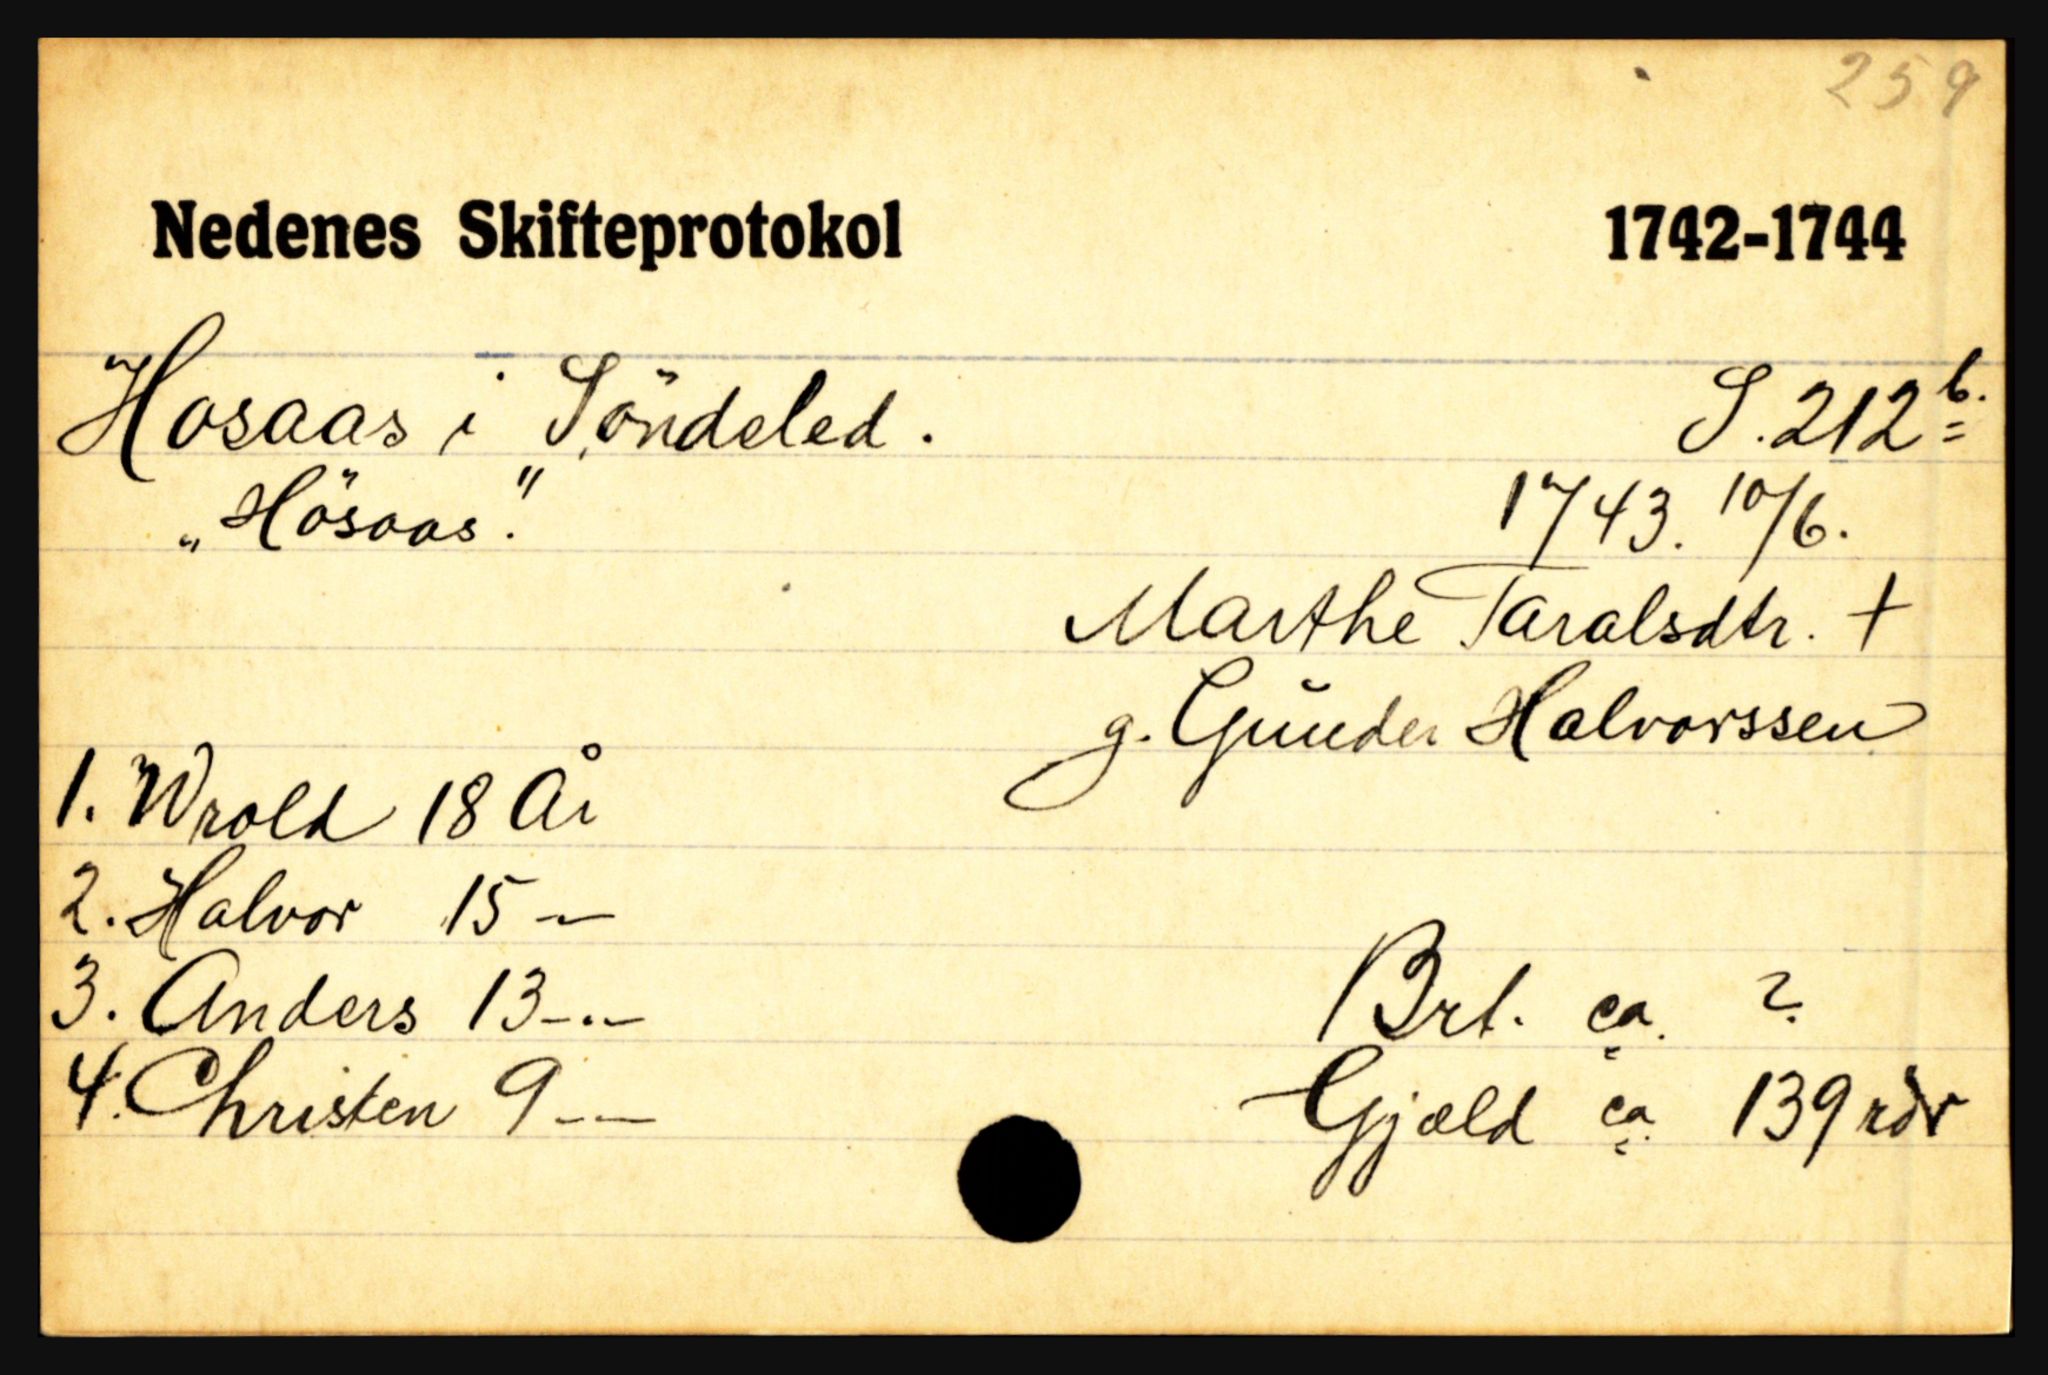 259
Nedenes Skifteprotokol 1742-1744
Hosaas i Söndeled. S. 212b.
„Hösaas". 1743. 10/6.
Marthe Taralsdtr. +
g. Gŭnder Halvorssen
1. Wrold 18 År
2. Halvor 15 —
3. Anders 13 —
4. Christen 9 —
Brt. ca. ?
Gjæld ca. 139 rdr